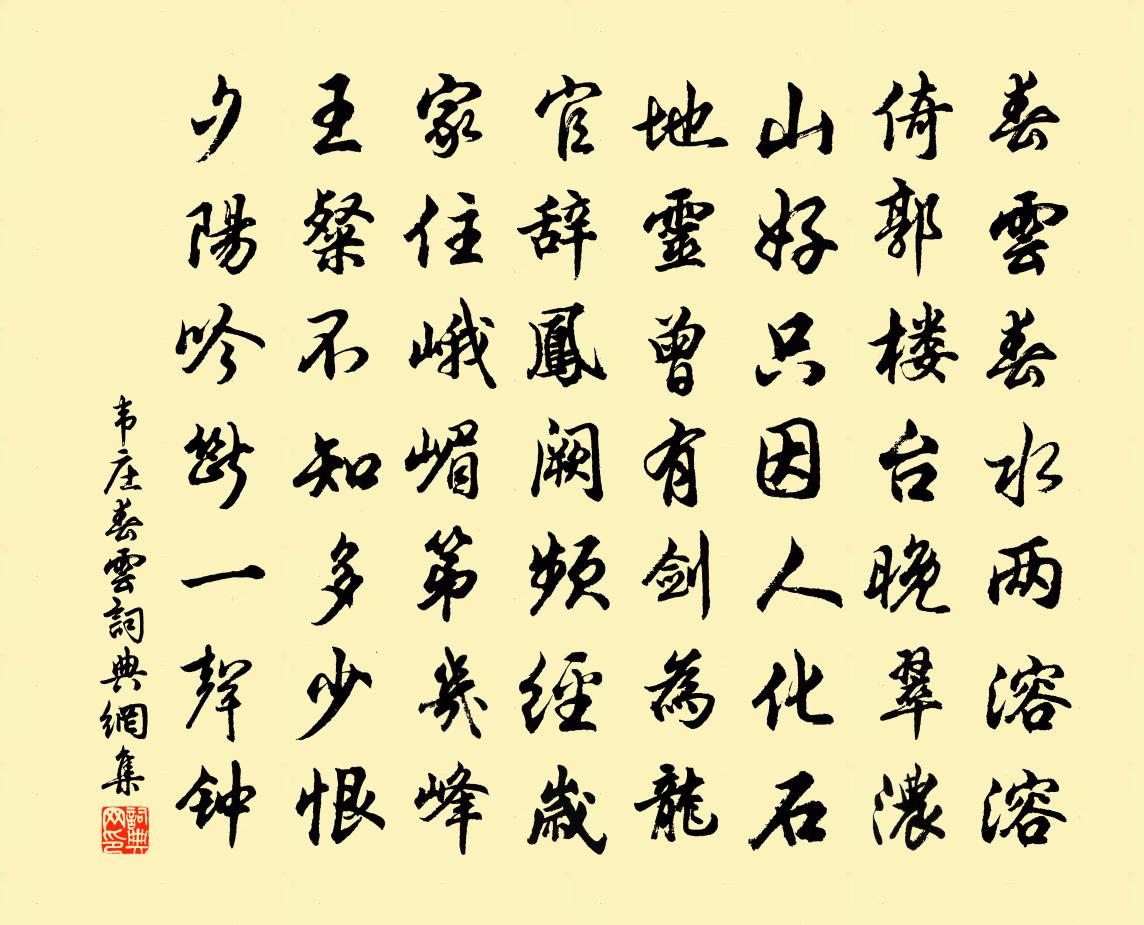 春雲春水两溶溶
倚郭楼台晚翠濃
山好只因人化石
地靈曾有剑為龍
官辞鳳阙频經歳
家住峨嵋第幾峰
王粲不知多少恨
夕陽吟斷一聲钟
韦庄春雲詞典網集
詞典
网印